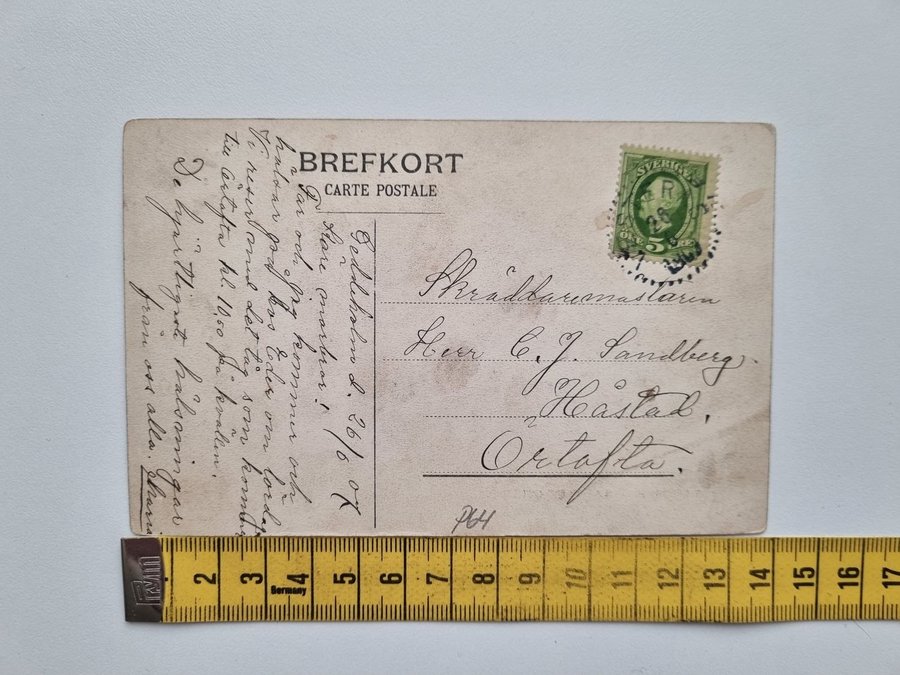 BREFKORT
CARTE POSTALE
SVERIGE
5
ÖRE
Geddeholm d. 26/6 07
Käre morbror!
Far och jag kommer och
hälsar på hos Eder om lördag
Vi reser med det tåg som kommer
till Örtofta kl. 10.00 på kvällen.
De hjertligaste hälsningar
från oss alla. Maria
Skräddaremästaren
Herr C. J. Sandberg.
Håstad.
Örtofta.
P64
Germany
2 3 4 5 6 7 8 9 10 11 12 13 14 15 16 17